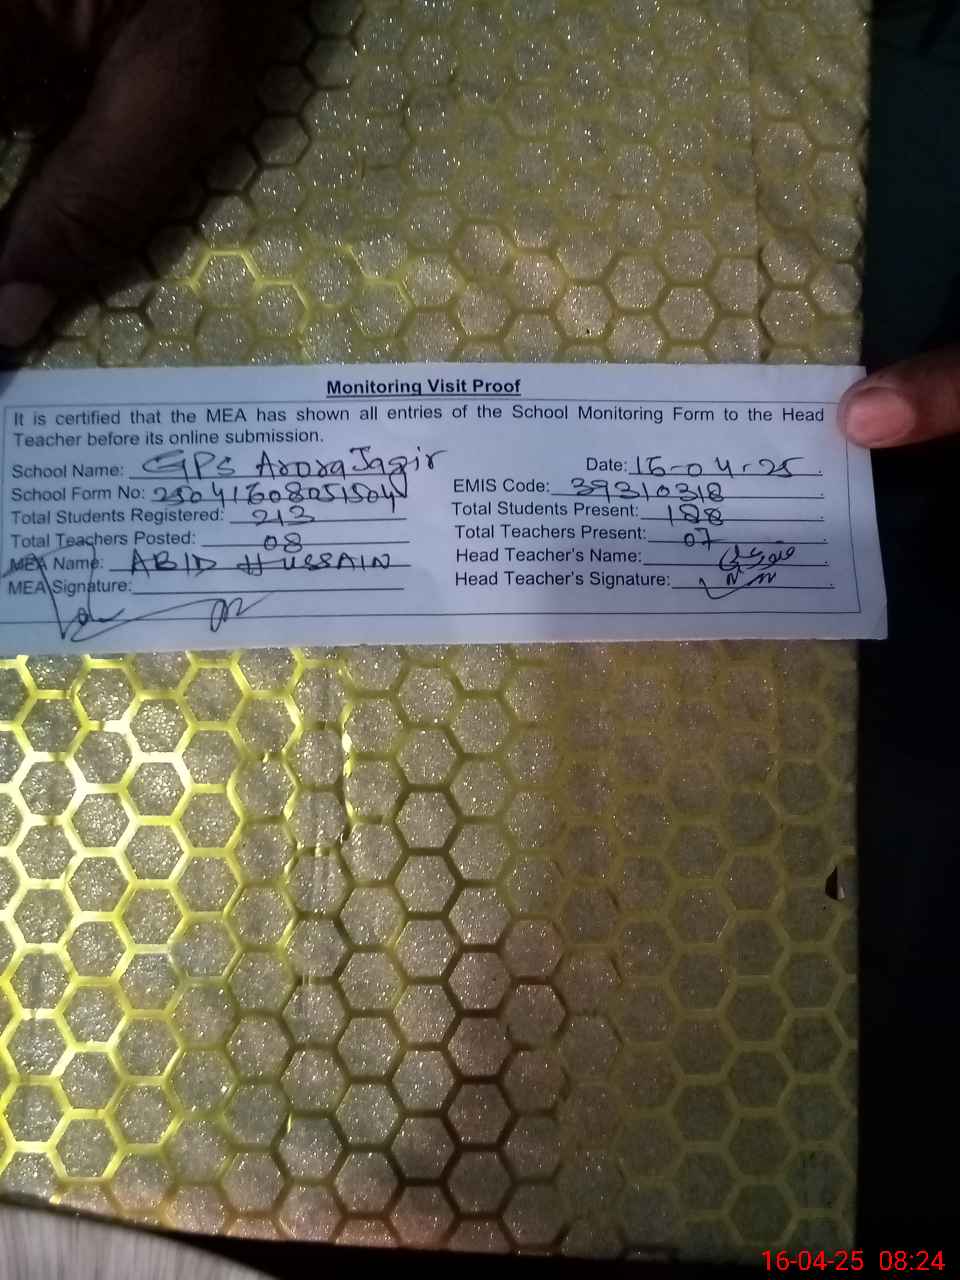 Monitoring Visit Proof
It is certified that the MEA has shown all entries of the School Monitoring Form to the Head
Teacher before its online submission.
School Name: GPS Arora Jagir
Date: 16-04-25
School Form No: 25041608051504
EMIS Code: 39310318
Total Students Registered: 213
Total Students Present: 188
Total Teachers Posted: 08
Total Teachers Present: 07
MEA Name: ABID HUSSAIN
Head Teacher's Name:
MEA Signature:
Head Teacher's Signature:
16-04-25 08:24